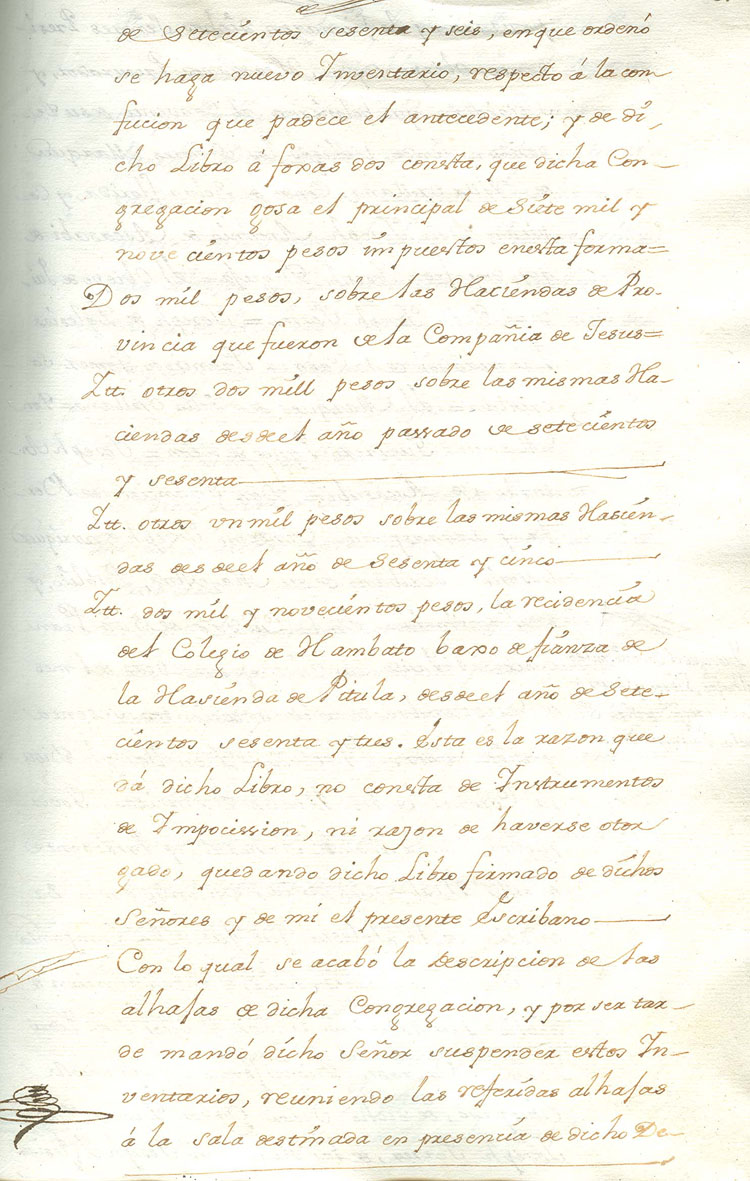 de Setecientos sesenta y seis, en que ordenó
se haga nuevo Inventario, respecto á la con
fucion que padece el antecedente; y de di,
cho Libro á foxas dos consta, que dicha Con-
gregacion gosa el principal de Siete mil y
nove cientos pesos impuestos en esta forma=
Dos mil pesos, sobre las Haciendas de Pro-
vincia que fueron de la Compañia de Jesus=
Itt. otros dos mill pesos sobre las mismas Ha-
ciendas desde el año passado de setecientos
y sesenta
Itt. otros un mil pesos sobre las mismas Hacien-
das desde el año de Sesenta y cinco
Itt. dos mil y novecientos pesos, la recidencia
del Colegio de Hambato baxo de fianza de
la Hasienda de Pitula, desde el año de Sete-
cientos sesenta y tres. Esta es la razon que
dá dicho Libro, no consta de Instrumentos
de Impocission, ni razon de haverse otor
gado, quedando dicho Libro firmado de dichos
Señores y de mi el presente Escribano
Con lo qual se acabó la Descripcion de las
alhajas de dicha Congregacion, y por ser tar-
de mandó dicho Señor suspender estos In-
ventarios, reuniendo las referidas alhajas
á la sala destinada en presencia de dicho De-